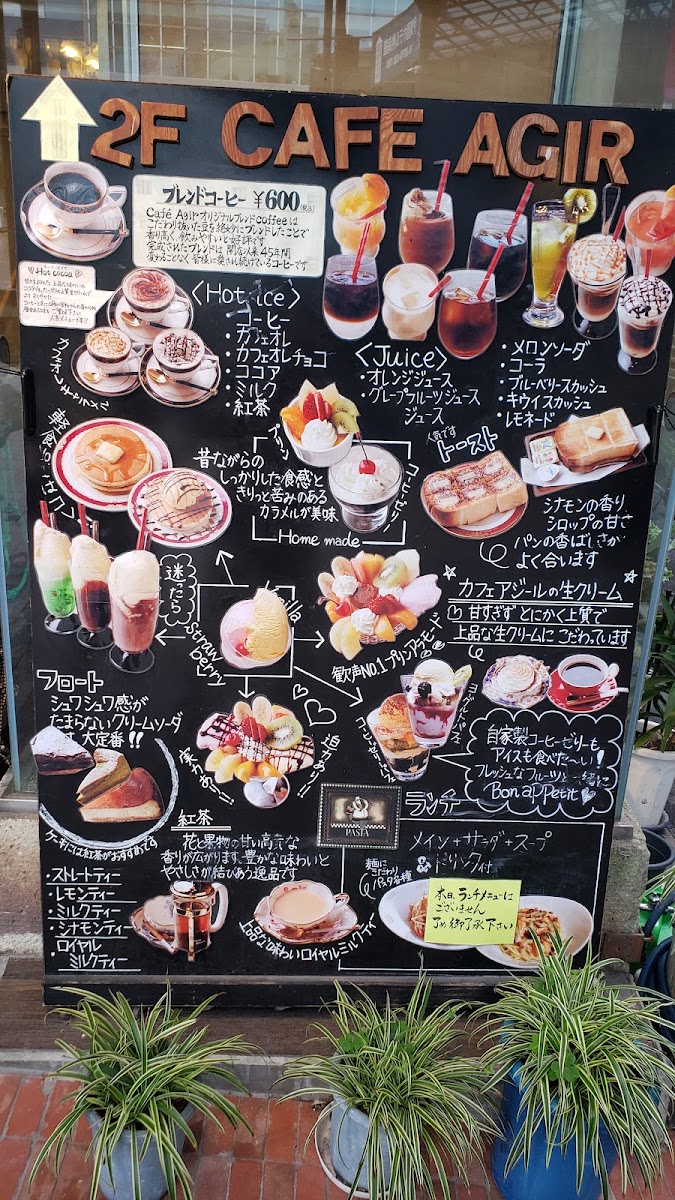 2F CAFE AGIR
ブレンドコーヒー ¥600(税込)
Café Agirオリジナルブレンドcoffeeは
こだわり抜いた豆を絶妙にブレンドしたことで
香り高く飲みやすいと好評です
完成されたブレンドは開店以来45年間
変わることなく皆様に愛され続けているコーヒーです
Hot cocoa
<Hot・ice>
・コーヒー
・カフェオレ
・カフェオレチョコ
・ココア
・ミルク
・紅茶
<Juice>
・オレンジジュース
・グレープフルーツジュース
・ジュース
・メロンソーダ
・コーラ
・ブルーベリースカッシュ
・キウイスカッシュ
・レモネード
プリン
昔ながらの
しっかりした食感と
きりっと苦みのある
カラメルが美味
コーヒーゼリー
Home made
人気です
トースト
シナモンの香り
シロップの甘さ
パンの香ばしさが
よく合います
迷ったら
Vanilla
Strawberry
歓声NO.1プリンアラモード
カフェアジールの生クリーム
甘すぎず とにかく上質で
上品な生クリームに こだわっています
フロート
シュワシュワ感が
たまらないクリームソーダ
です 大定番!!
ケーキには紅茶がおすすめです
自家製コーヒーゼリーも
アイスも食べた〜い!
フレッシュなフルーツと一緒に
Bon appetit
紅茶
花と果物の甘い高貴な
香りが広がります。豊かな味わいと
やさしさが結びあう逸品です
・ストレートティー
・レモンティー
・ミルクティー
・シナモンティー
・ロイヤル
ミルクティー
上品な味わいロイヤルミルクティー
PASTA
ランチ
メイン+サラダ+スープ
ドリンク付
麺に
こだわり
パスタ各種
本日、ランチメニューは
ございません
ご了承下さい